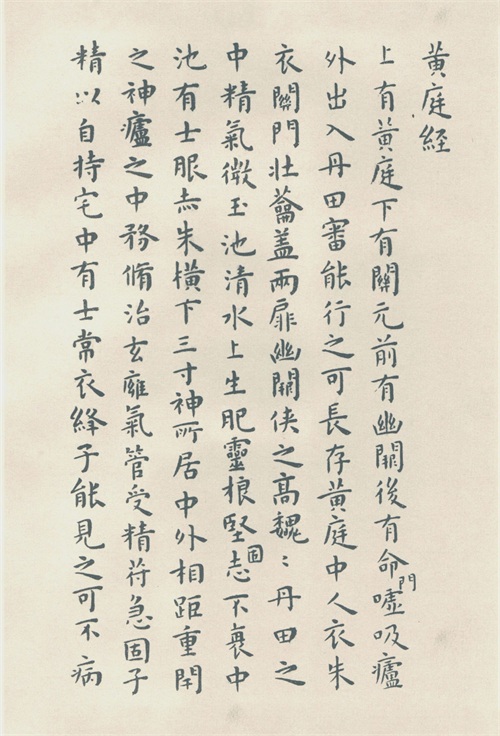 黃庭経
上有黃庭下有關元前有幽關後有命門噓吸廬
外出入丹田審能行之可長存黃庭中人衣朱
衣關門壮蘥盖兩扉幽關俠之高魏〻丹田之
中精氣微玉池清水上生肥靈根堅固志不衰中
池有士服赤朱橫下三寸神所居中外相距重閇
之神廬之中務脩治玄廱氣管受精苻急固子
精以自持宅中有士常衣絳子能見之可不病